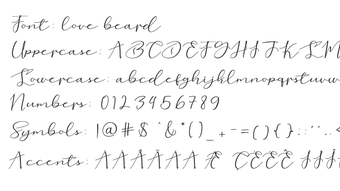 Font: love beard
Uppercase: A B C D E F G H I J K L M
Lowercase: abcdefghijklmnopqrstuvw
Numbers: 0123456789
Symbols: |@#$ & * ( ) _ + - = ( ) { } : ; " ' , . <
Accents: À Á Â Ã Ä Å Æ Ç È É Ê Ë